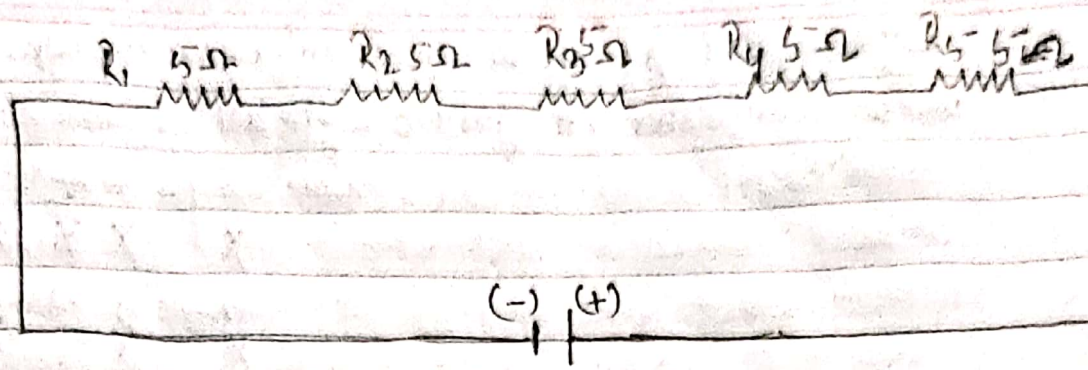 R₁ 5Ω R₂ 5Ω R₃ 5Ω R₄ 5Ω R₅ 5Ω
(-) (+)